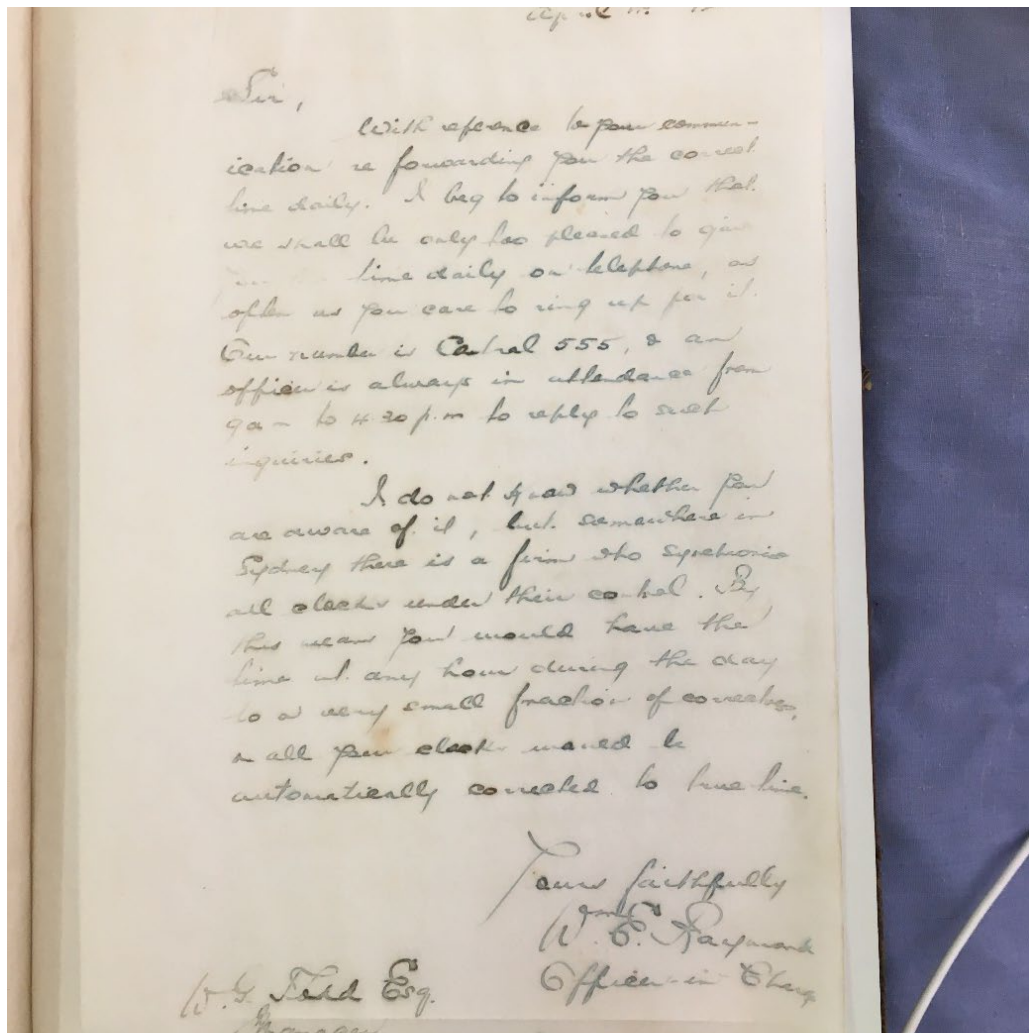 April
Sir,
With reference to your commun-
ication re forwarding you the correct
time daily. I beg to inform you that
we shall be only too pleased to give
you time daily on telephone, as
often as you care to ring up for it.
Our number is Central 555, & an
officer is always in attendance from
9 am to 4.30 p.m to reply to such
inquiries.
I do not know whether you
are aware of it, but somewhere in
Sydney there is a firm who synchronise
all clocks under their control. By
this means you would have the
time at any hour during the day
to a very small fraction of correctness,
& all your clocks would be
automatically corrected to true time.
Yours faithfully
Wm E. Raymond
Officer-in Charge
W. G. Esq.
Manager